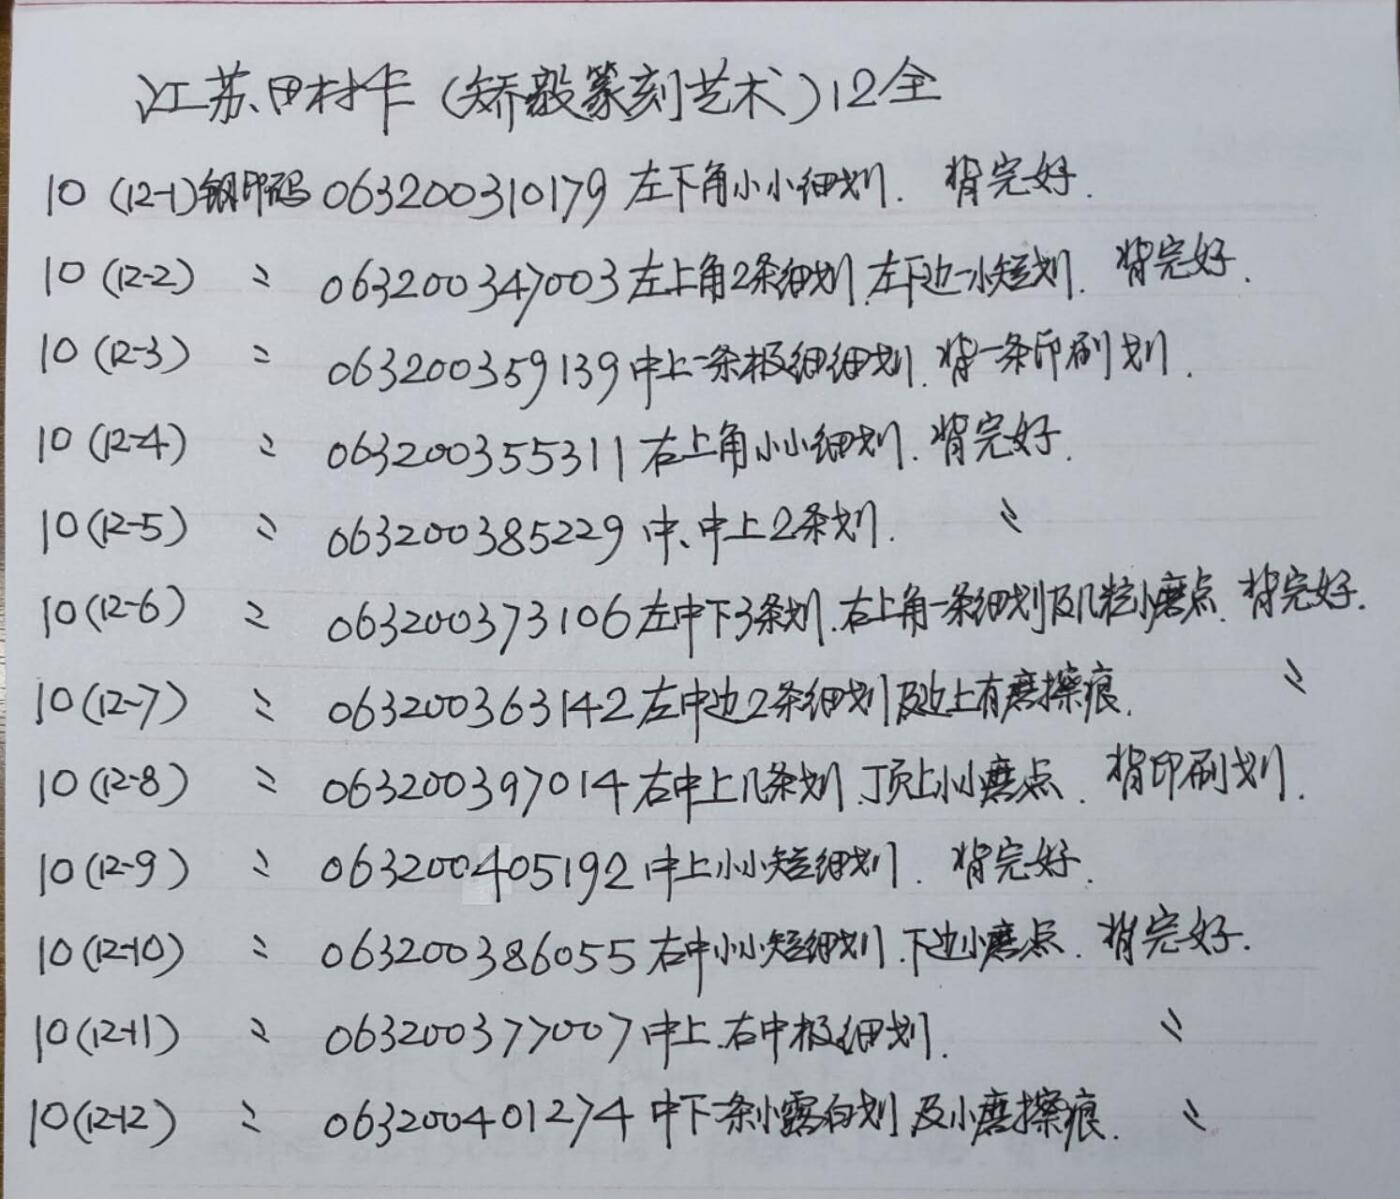 江苏田村卡（矫毅篆刻艺术）12全
10 (12-1)钢印码 063200310179 左下角小小细划. 背完好.
10 (12-2) 〃 063200347003 左上角2条细划.左下边一小短划. 背完好.
10 (12-3) 〃 063200359139 中上一条极细细划. 背一条印刷划.
10 (12-4) 〃 063200355311 右上角小小细划. 背完好.
10 (12-5) 〃 063200385229 中、中上2条划. 〃
10 (12-6) 〃 063200373106 左中下3条划.右上角一条细划及几粒小磨点. 背完好.
10 (12-7) 〃 063200363142 左中边2条细划及边上有磨擦痕. 〃
10 (12-8) 〃 063200397014 右中上几条划.顶上小小磨点. 背印刷划.
10 (12-9) 〃 063200405192 中上小小短细划. 背完好.
10 (12-10) 〃 063200386055 右中小小短细划.下边小磨点. 背完好.
10 (12-11) 〃 063200377007 中上.右中极细划. 〃
10 (12-12) 〃 063200401274 中下一条小露白划及小磨擦痕. 〃